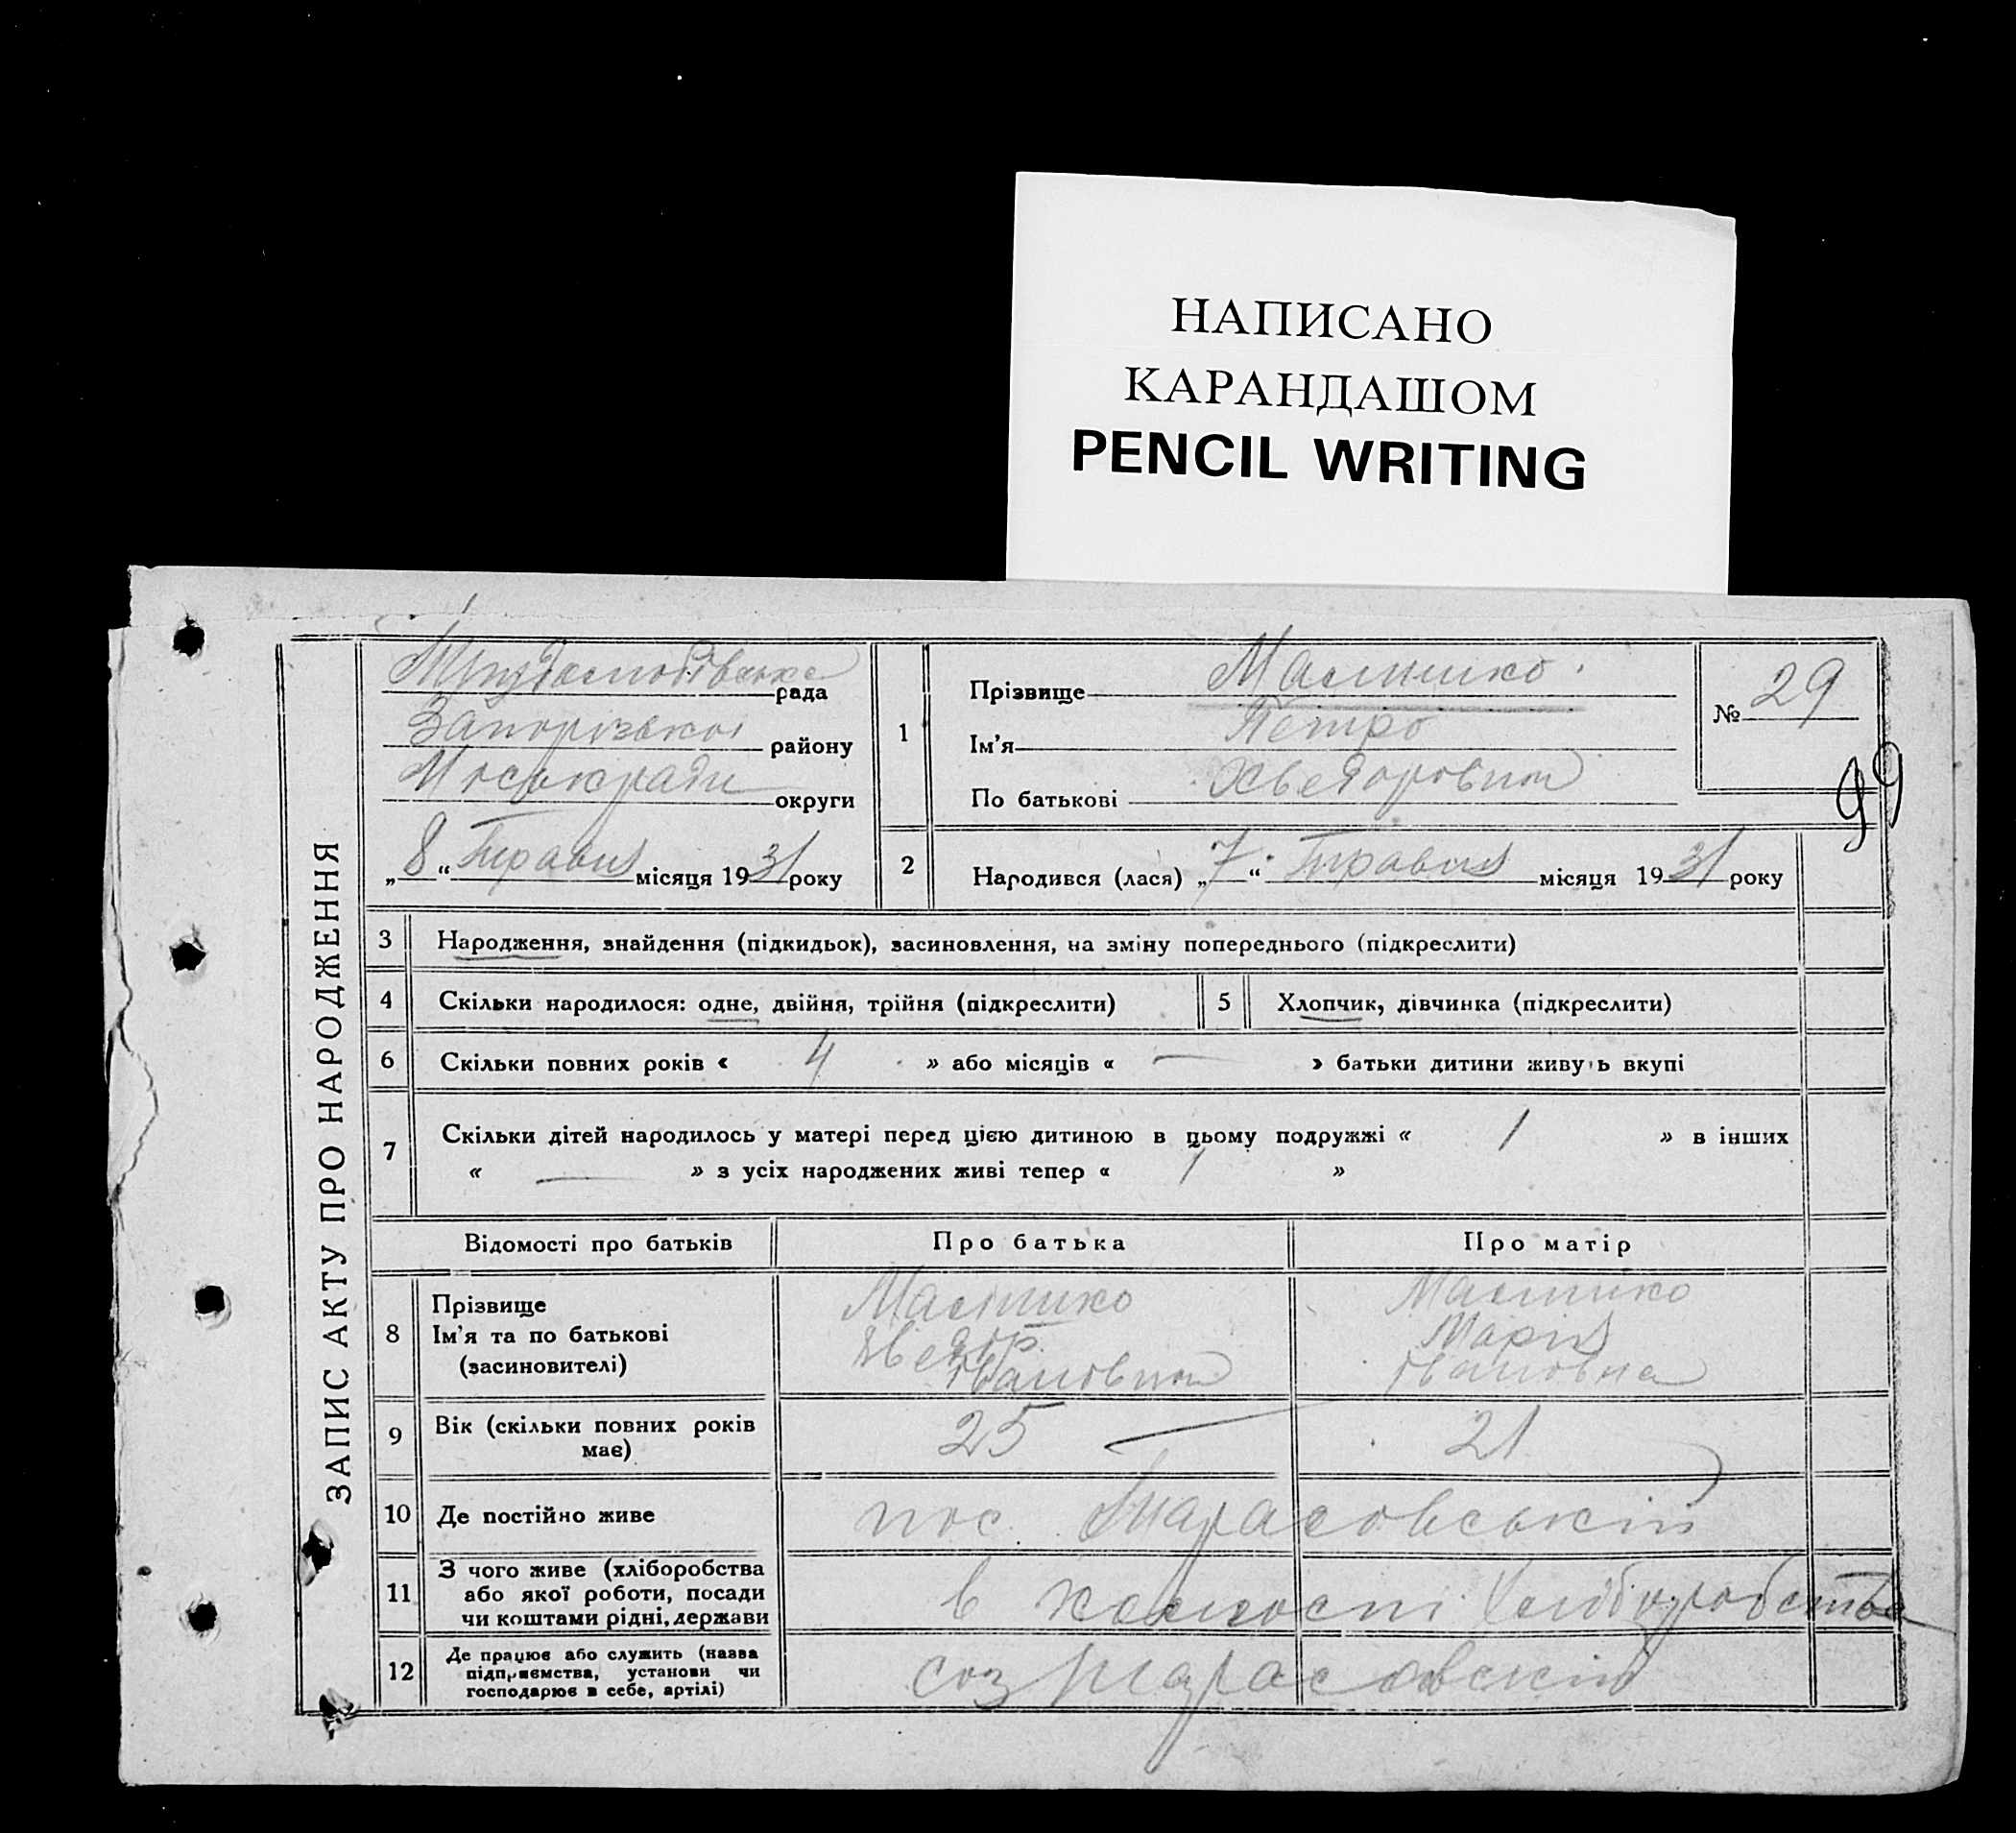 НАПИСАНО
КАРАНДАШОМ
PENCIL WRITING
ЗАПИС АКТУ ПРО НАРОДЖЕННЯ
рада
Запорізької району
Міськради округи
„8“ Травня місяця 1931 року
1
Прізвище
Ім'я Петро
По батькові Хведорович
№ 29
99
2
Народився (лася) „7“ Травня місяця 1931 року
3 Народження, знайдення (підкидьок), засиновлення, на зміну попереднього (підкреслити)
4 Скільки народилося: одне, двійня, трійня (підкреслити)
5 Хлопчик, дівчинка (підкреслити)
6 Скільки повних років « 4 » або місяців « — » батьки дитини живуть вкупі
7 Скільки дітей народилось у матері перед цією дитиною в цьому подружжі « 1 » в інших
« — » з усіх народжених живі тепер « 1 »
Відомості про батьків
Про батька
Про матір
8
Прізвище
Ім'я та по батькові
(засиновителі)
Хведор
Іванович
Марія
Івановна
9
Вік (скільки повних років
має)
25
21
10 Де постійно живе
пос. Тарасовський
11
З чого живе (хліборобства
або якої роботи, посади
чи коштами рідні, держави
в Хліборобства
12
Де працює або служить (назва
підприємства, установи чи
господарює в себе, артілі)
соз Тарасовский